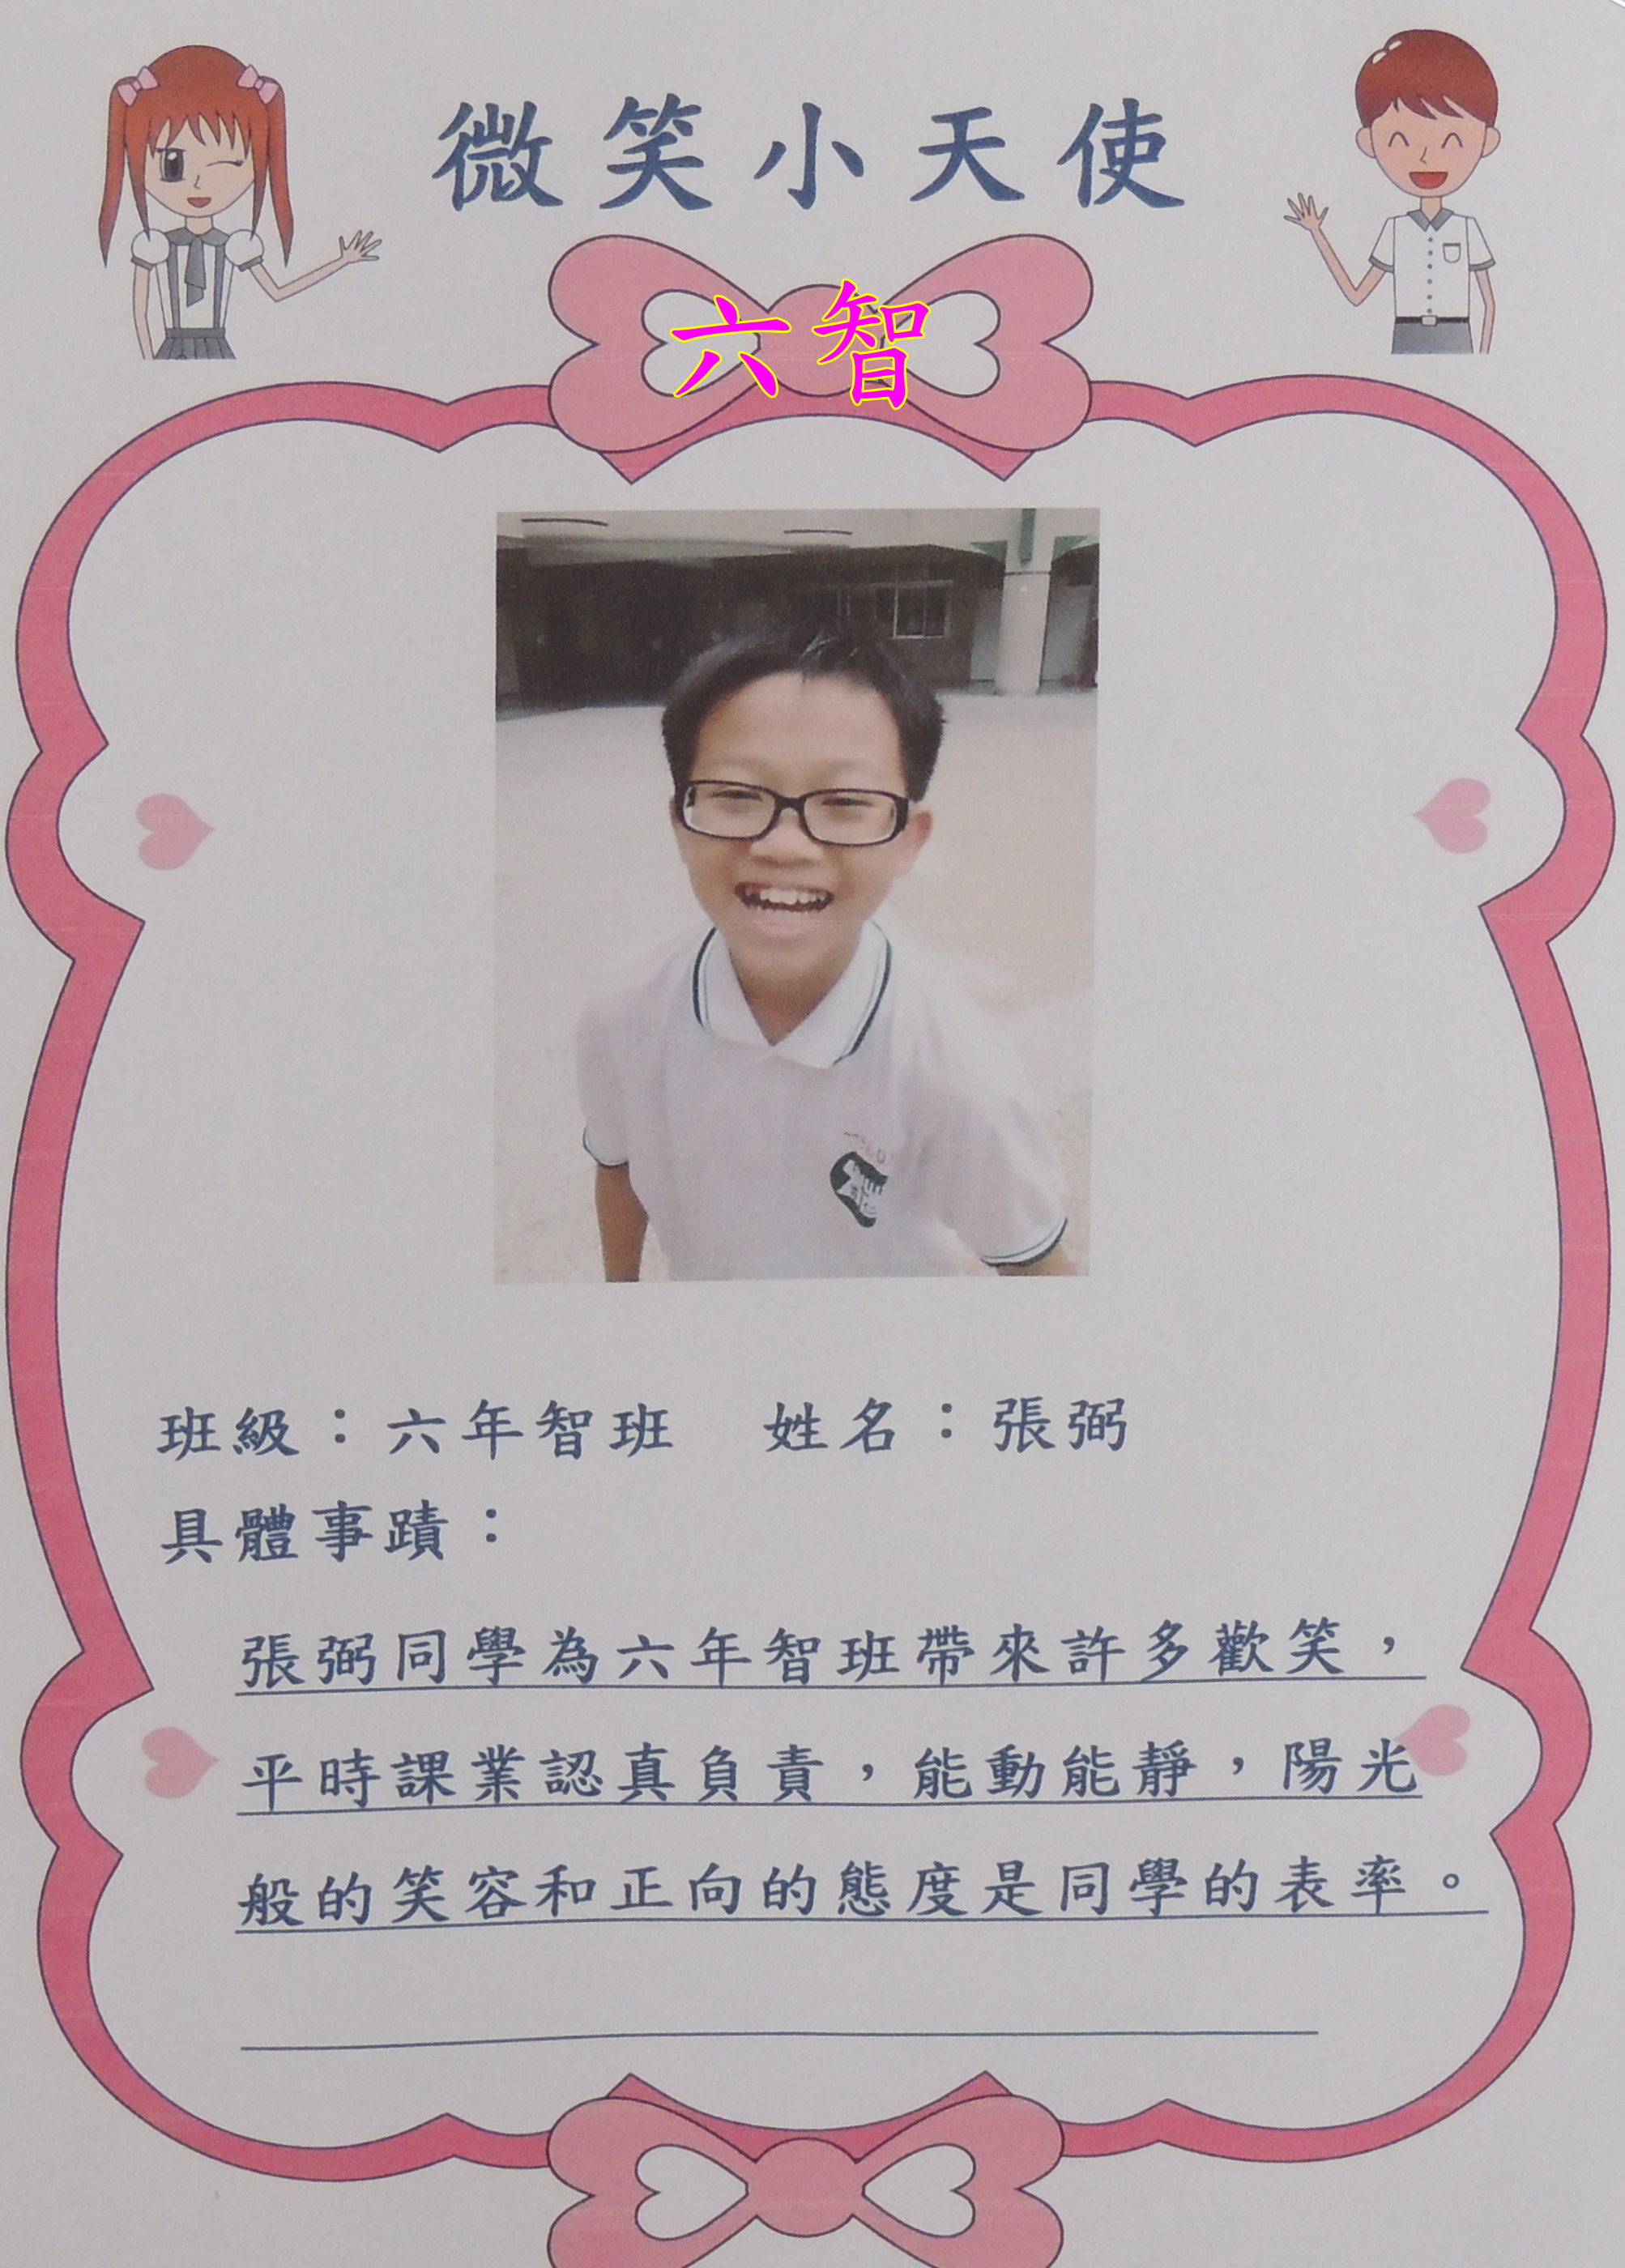 微笑小天使
六智
班級：六年智班　姓名：張弼
具體事蹟：
張弼同學為六年智班帶來許多歡笑，
平時課業認真負責，能動能靜，陽光
般的笑容和正向的態度是同學的表率。